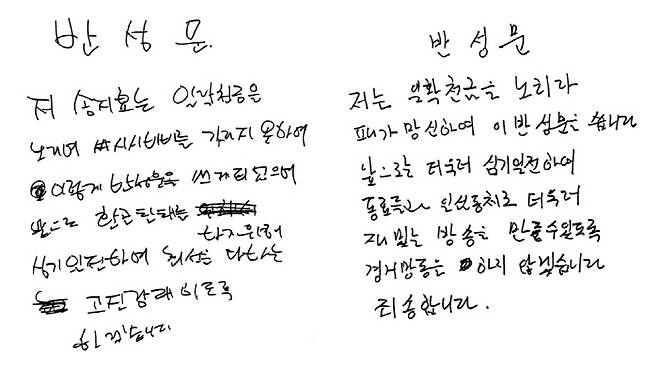 반성문.
저 송지효는 일확천금은
노리며 시시비비를 가리지 못하여
이렇게 반성문을 쓰게 되었으며
앞으로 하지 않고
심기일전하여 최선을 다하는
고진감래 이도록
하겠습니다
반성문
저는 일확천금을 노리다
패가망신하여 이 반성문을 씁니다
앞으로는 더욱더 심기일전하여
동료들과 일심동체로 더욱더
재밌는 방송을 만들수있도록
경거망동을 하지 않겠습니다
죄송합니다.